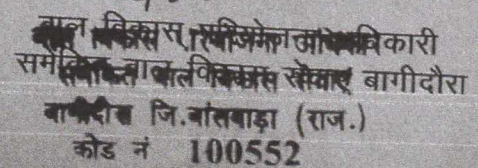 बाल विकास परियोजना अधिकारी
समेकित बाल विकास सेवाएं बागीदौरा
बागीदौरा जि.बांसवाड़ा (राज.)
कोड नं 100552